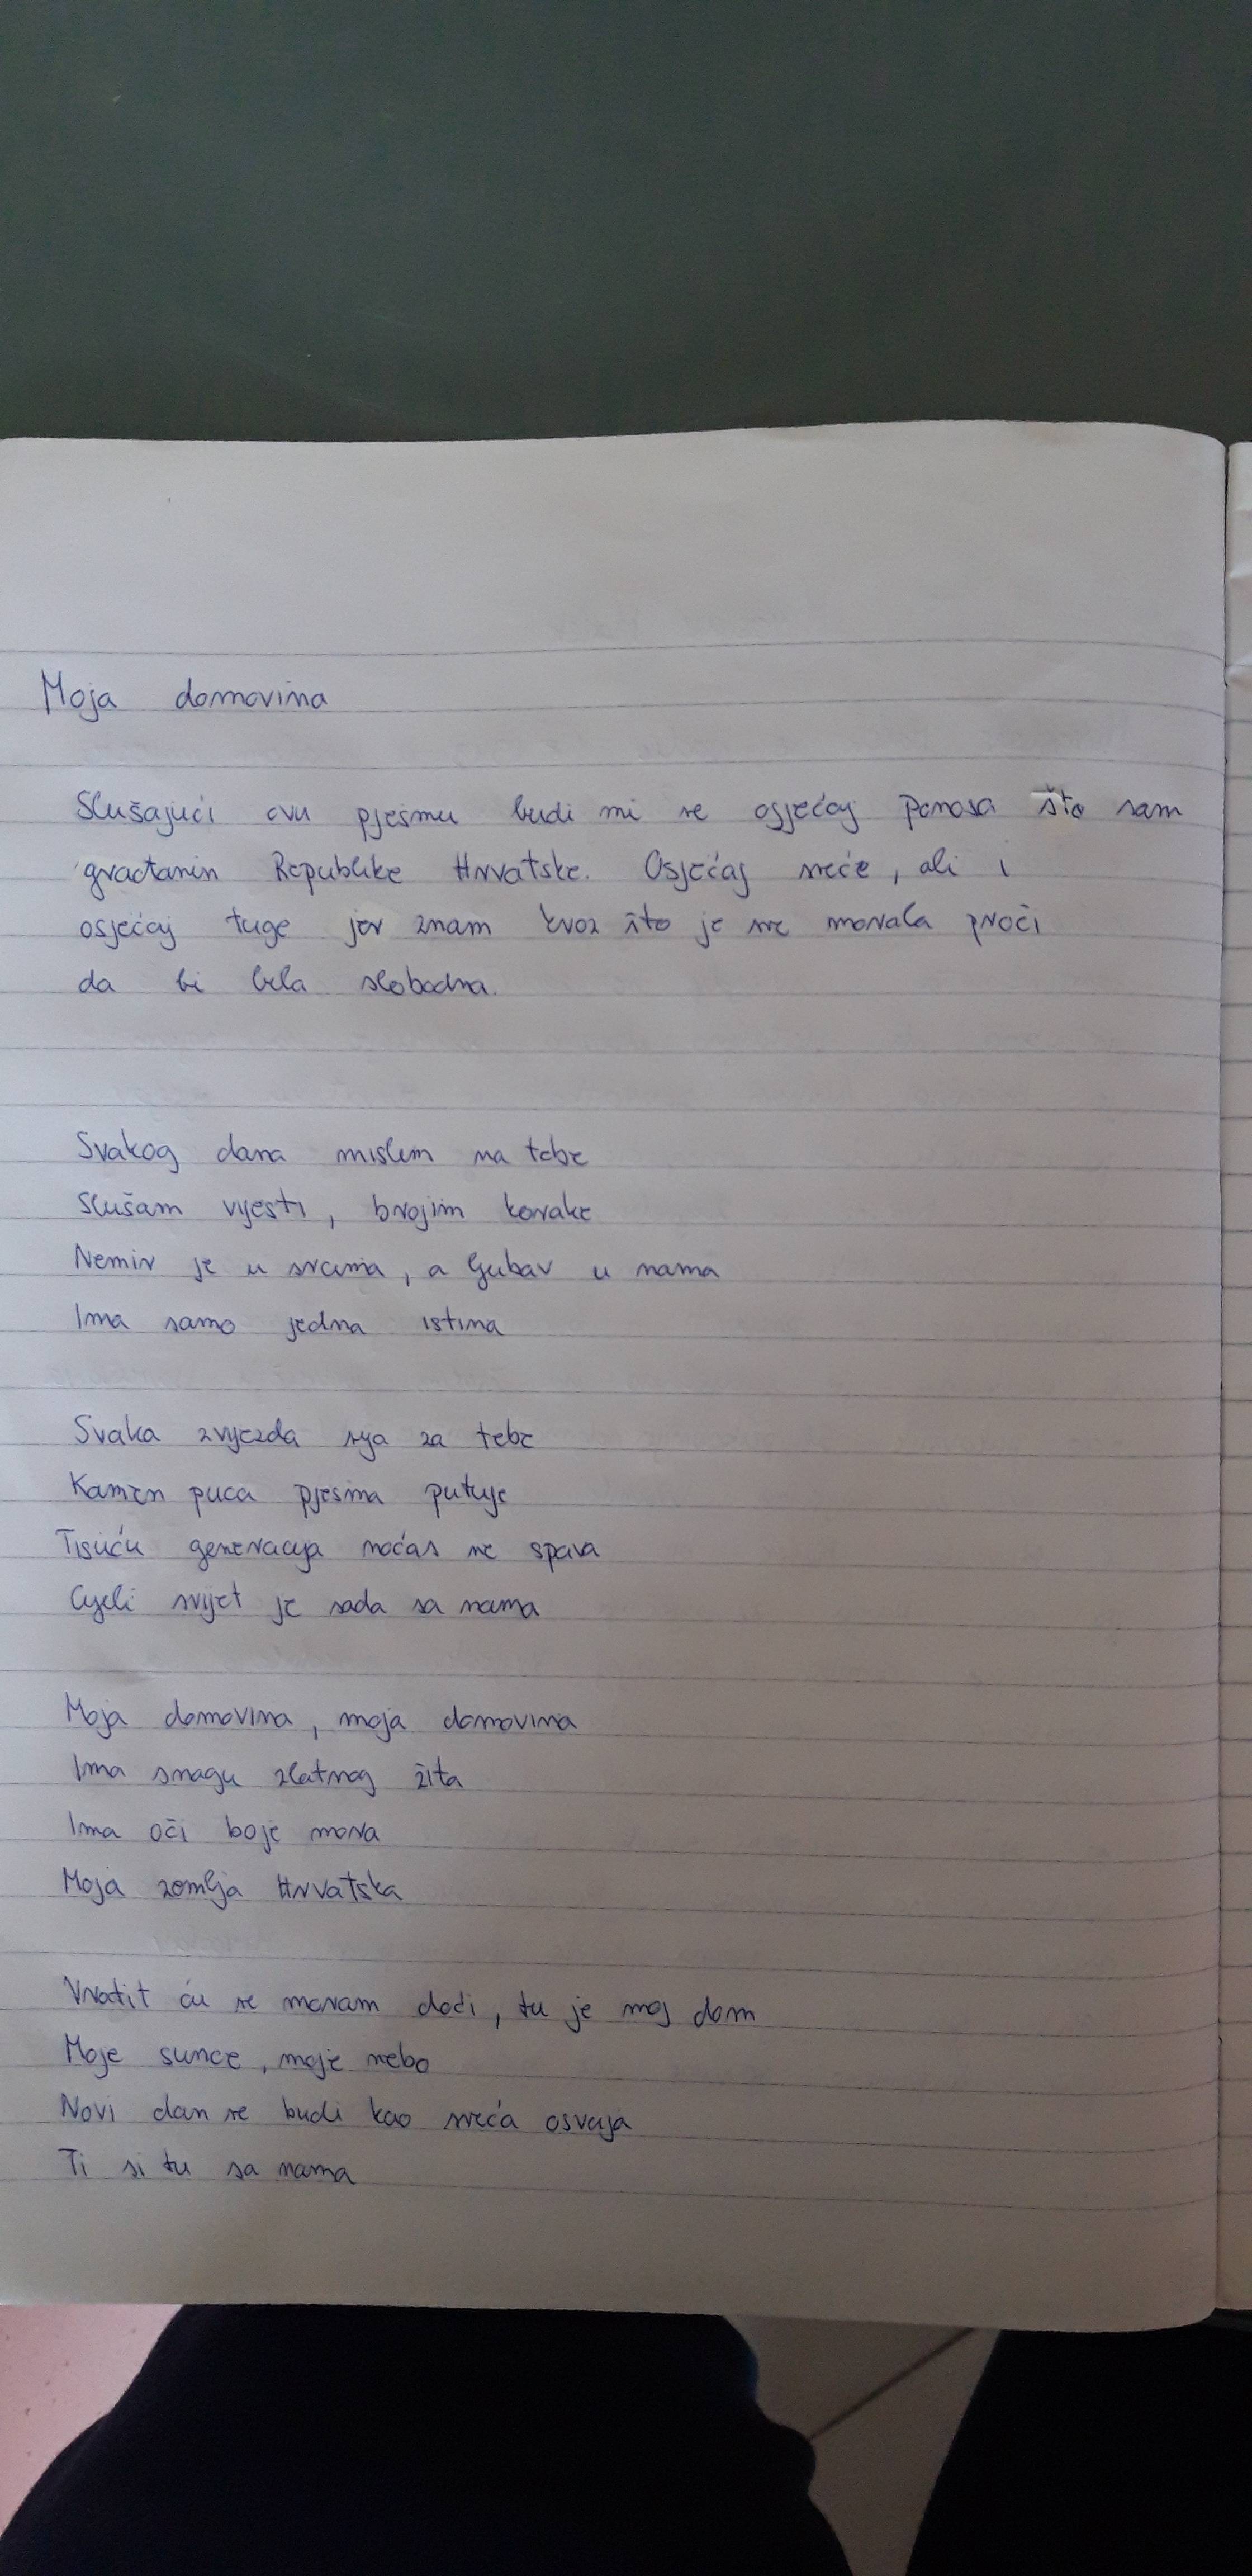 Moja domovina
Slušajući ovu pjesmu budi mi se osjećaj ponosa što sam
građanin Republike Hrvatske. Osjećaj sreće, ali i
osjećaj tuge jer znam kroz što je sve morala proći
da bi bila slobodna.
Svakog dana mislim na tebe
Slušam vijesti, brojim korake
Nemir je u srcima, a ljubav u nama
Ima samo jedna istina
Svaka zvijezda sija za tebe
Kamen puca pjesma putuje
Tisuću generacija noćas ne spava
Cijeli svijet je sada sa nama
Moja domovina, moja domovina
Ima snagu zlatnog žita
Ima oči boje mora
Moja zemlja Hrvatska
Vratit ću se moram doći, tu je moj dom
Moje sunce, moje nebo
Novi dan se budi kao sreća osvaja
Ti si tu sa nama